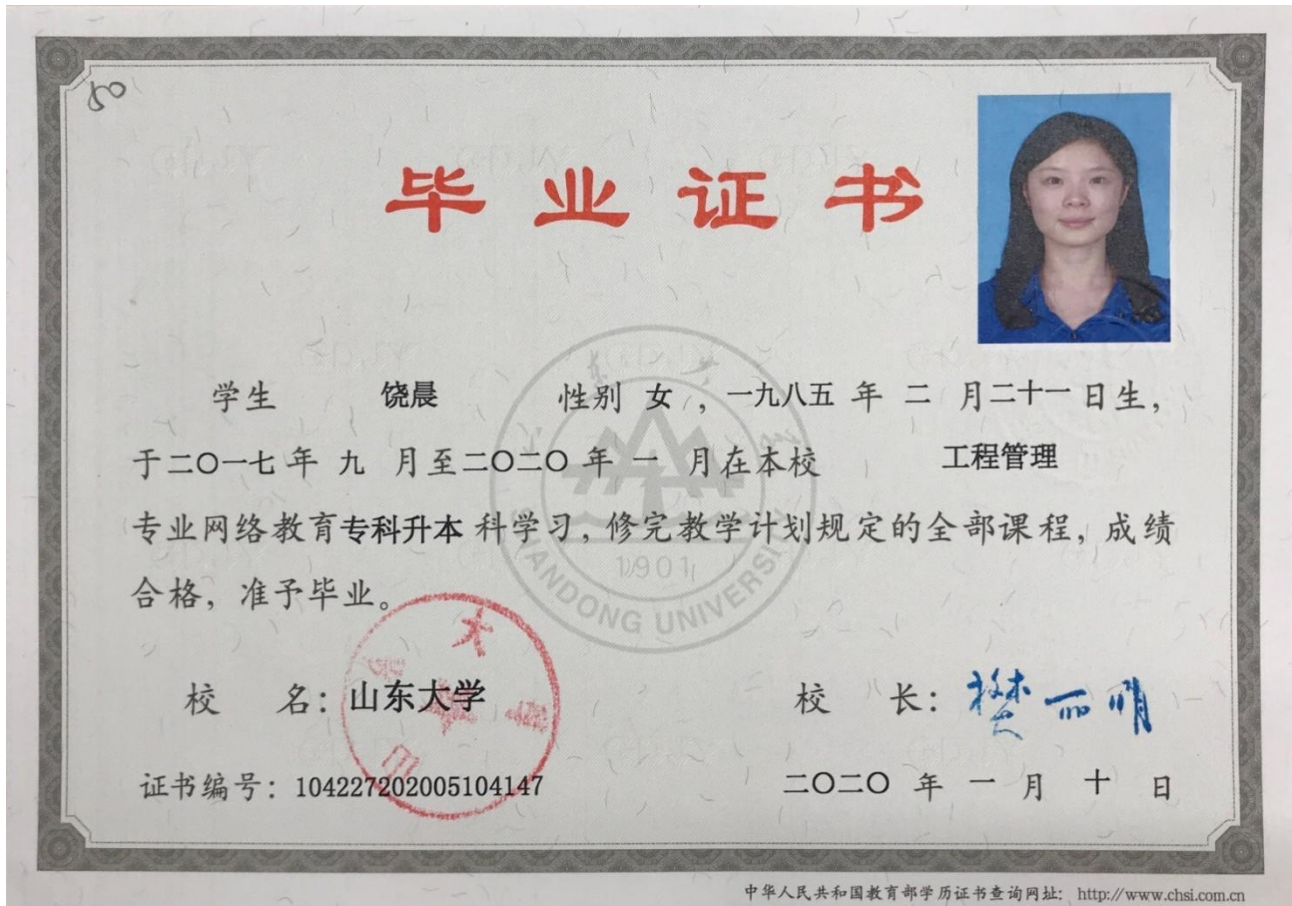 50
毕业证书
学生 饶晨 性别 女,一九八五 年 二 月二十一日生,
于二〇一七年 九 月至二〇二〇年 一 月在本校 工程管理
专业网络教育专科升本科学习,修完教学计划规定的全部课程,成绩
合格,准予毕业。
1901
SHANDONG UNIVERSITY
校 名:山东大学
校 长:樊丽明
证书编号:104227202005104147
二〇二〇 年 一 月 十 日
中华人民共和国教育部学历证书查询网址:http://www.chsi.com.cn